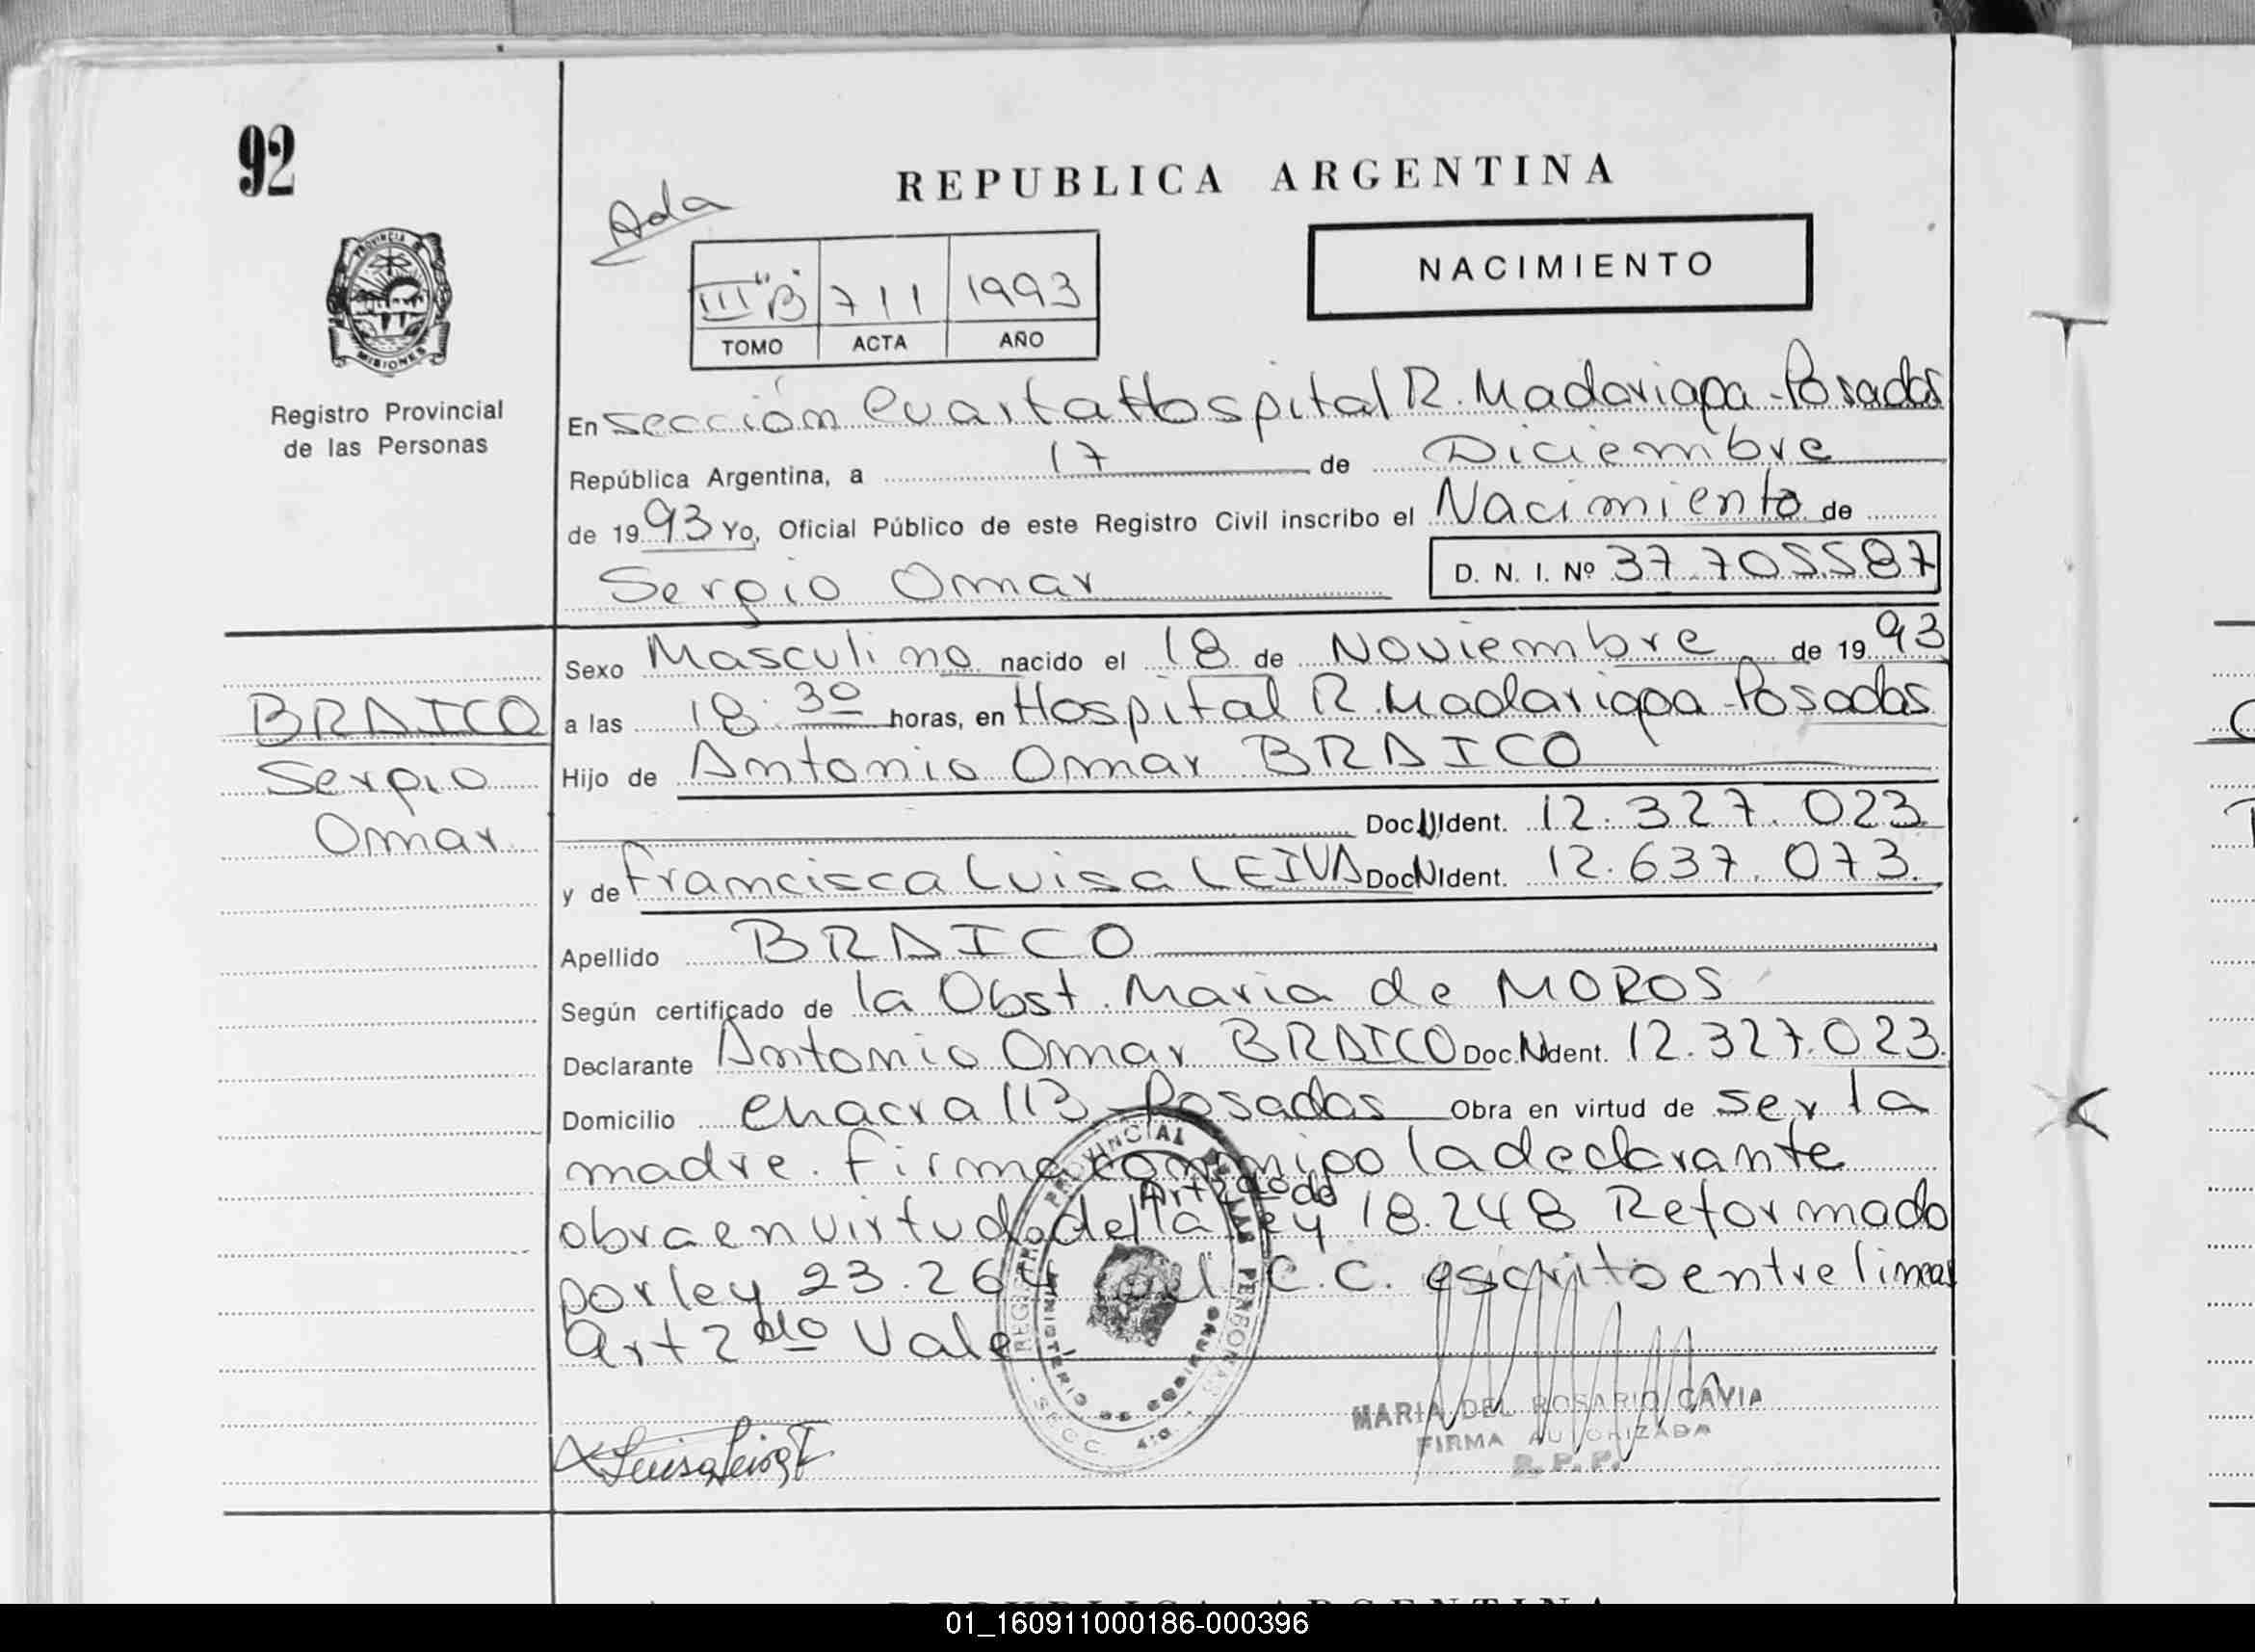 92
REPUBLICA ARGENTINA
Ada
NACIMIENTO
III "B" 711 1993
TOMO ACTA AÑO
PROVINCIA DE
MISIONES
Registro Provincial
de las Personas
En sección Cuarta Hospital R. Madariaga - Posadas
República Argentina, a 17 de Diciembre
de 1993 Yo, Oficial Público de este Registro Civil inscribo el Nacimiento de
Sergio Omar D. N. I. Nº 37.705.587
Sexo Masculino nacido el 18 de Noviembre de 1993
a las 18:30 horas, en Hospital R. Madariaga - Posadas
Hijo de Antonio Omar BRAICO
Doc. N Ident. 12.327.023
y de Francisca Luisa LEIVA Doc N Ident. 12.637.073.
BRAICO
Sergio
Omar
Apellido BRAICO
Según certificado de la Obst. Maria de MOROS
Declarante Antonio Omar BRAICO Doc. N Ident. 12.327.023.
Domicilio Chacra 113 - Posadas Obra en virtud de ser la
madre. Firma conmigo la declarante
Art 2do de
obra en virtud de la ley 18.248 Reformado
por ley 23.264 del C.C. escrito entre lineas
Art 2do Vale
REGISTRO PROVINCIAL DE LAS PERSONAS
MINISTERIO DE GOBIERNO
SECC. 4ta.
Luisa Leiva
MARIA DEL ROSARIO GAVIA
FIRMA AUTORIZADA
R. P. P.
REPUBLICA ARGENTINA
01_160911000186-000396